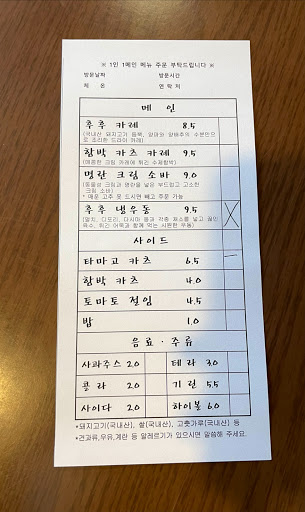 ※ 1인 1메인 메뉴 주문 부탁드립니다 ※
방문날짜 방문시간
체 온 연 락 처
메 인
후추 카레 8.5
(국내산 돼지고기 듬뿍, 양파와 양배추의 수분만으
로 조리한 드라이 카레)
함박 카츠 카레 9.5
(매콤한 크림 카레에 튀긴 수제함박)
명란 크림 소바 9.0
(동물성 크림과 명란을 넣은 부드럽고 고소한
크림 소바)
* 매운 고추 못 드시면 빼고 주문 가능
후추 냉우동 9.5
(멸치, 디포리, 다시마 등과 각종 채소를 넣고 끓인
육수, 튀긴 어묵과 함께 먹는 시원한 우동)
사이드
타마고 카츠 6.5
함박 카츠 4.0
토마토 절임 4.5
밥 1.0
음료 · 주류
사과주스 2.0 테라 3.0
콜라 2.0 기린 5.5
사이다 2.0 하이볼 6.0
*돼지고기(국내산), 쌀(국내산), 고춧가루(국내산) 등
*견과류,우유,계란 등 알레르기가 있으시면 말씀해 주세요.